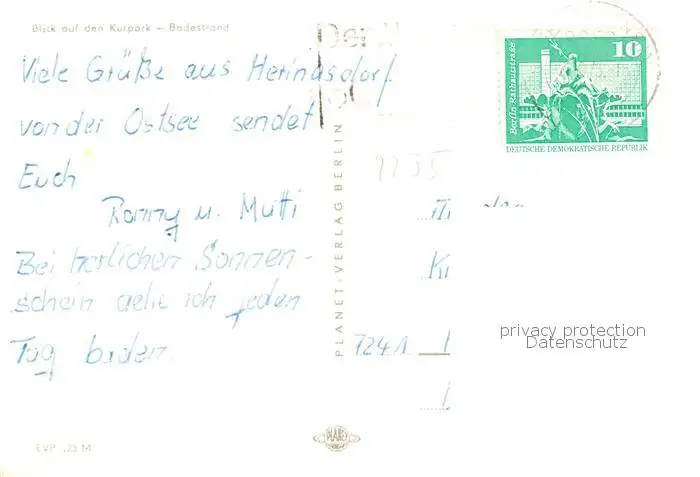 Blick auf den Kurpark – Badestrand
Viele Grüße aus Heringsdorf
von der Ostsee sendet
Euch
Ronny u. Mutti
Bei herlichen Sonnen-
schein gehe ich jeden
Tag baden.
EVP ,25 M
PLANET-VERLAG BERLIN
PLANET
Der
10
Berlin Rathausstraße
DEUTSCHE DEMOKRATISCHE REPUBLIK
7241
privacy protection
Datenschutz